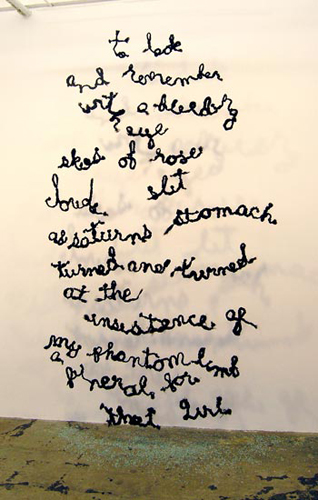 to look
and remember
with a bleeding
eye
skas of rose
cloud. slit
as saturns stomach
turned and turned
at the
insistence of
my phantom limb
a funeral, for
that girl